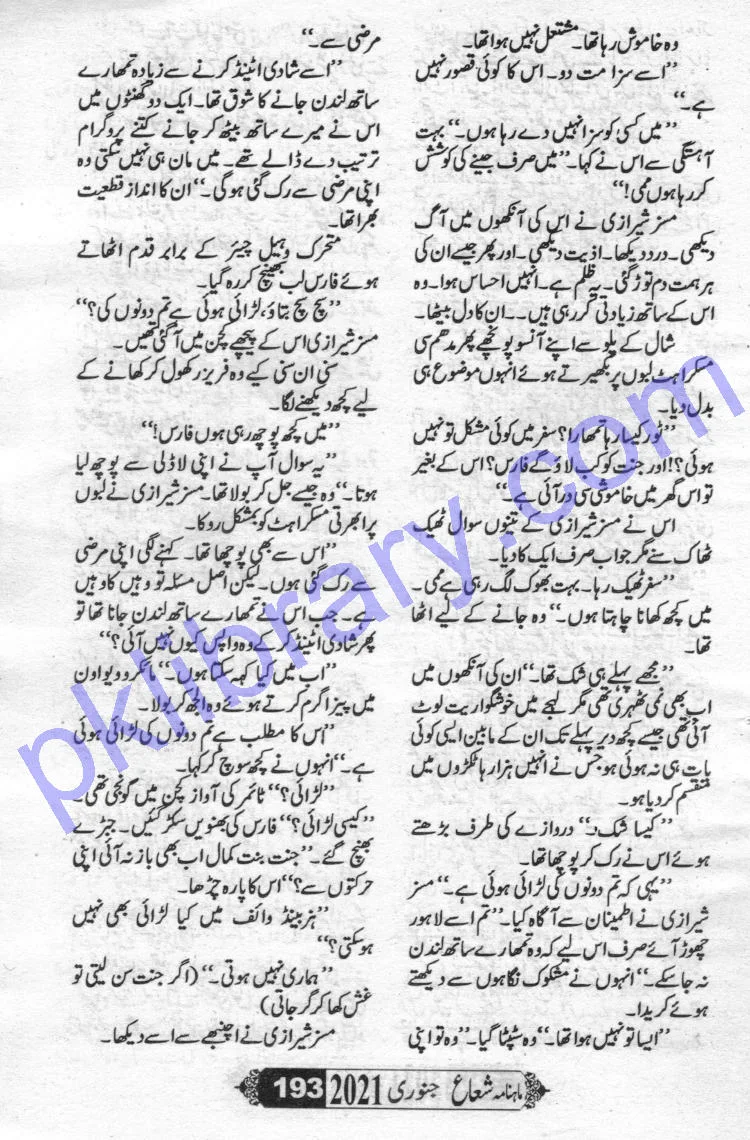 وہ خاموش رہا تھا۔ مشتعل نہیں ہوا تھا۔
”اسے سزا مت دو۔ اس کا کوئی قصور نہیں
ہے۔“
”میں کسی کو سزا نہیں دے رہا ہوں۔“ بہت
آہستگی سے اس نے کہا۔ ”میں صرف جینے کی کوشش
کر رہا ہوں ممی!“
مسز شیرازی نے اس کی آنکھوں میں آگ
دیکھی۔ درد دیکھا۔ اذیت دیکھی۔ اور پھر جیسے ان کی
ہر ہمت دم توڑ گئی۔ یہ ظلم ہے۔ انہیں احساس ہوا۔ وہ
اس کے ساتھ زیادتی کر رہی ہیں۔۔ ان کا دل بیٹھا۔
شال کے پلو سے اپنے آنسو پونچھے پھر مدھم سی
مسکراہٹ لبوں پر بکھیرتے ہوئے انہوں موضوع ہی
بدل دیا۔
”ٹور کیسا رہا تمھارا؟ سفر میں کوئی مشکل تو نہیں
ہوئی؟! اور جنت کو کب لاؤ گے فارس؟ اس کے بغیر
تو اس گھر میں خاموشی سی در آئی ہے۔“
اس نے مسز شیرازی کے تینوں سوال ٹھیک
ٹھاک سنے مگر جواب صرف ایک کا دیا۔
”سفر ٹھیک رہا۔ بہت بھوک لگ رہی ہے ممی۔
میں کچھ کھانا چاہتا ہوں۔“ وہ جانے کے لیے اٹھا
تھا۔
”مجھے پہلے ہی شک تھا۔“ ان کی آنکھوں میں
اب بھی نمی ٹھہری تھی مگر لہجے میں خوشگواریت لوٹ
آئی تھی جیسے کچھ دیر پہلے تک ان کے مابین ایسی کوئی
بات ہی نہ ہوئی ہو جس نے انہیں ہزارہا ٹکڑوں میں
منقسم کر دیا ہو۔
”کیسا شک؟“ دروازے کی طرف بڑھتے
ہوئے اس نے رک کر پوچھا تھا۔
”یہی کہ تم دونوں کی لڑائی ہوئی ہے۔“ مسز
شیرازی نے اطمینان سے آگاہ کیا۔ ”تم اسے لاہور
چھوڑ آئے صرف اس لیے کہ وہ تمھارے ساتھ لندن
نہ جا سکے۔“ انہوں نے مشکوک نگاہوں سے دیکھتے
ہوئے کریدا۔
”ایسا تو نہیں ہوا تھا۔“ وہ سٹپٹا گیا۔ ”وہ تو اپنی
مرضی سے۔“
”اسے شادی اٹینڈ کرنے سے زیادہ تمھارے
ساتھ لندن جانے کا شوق تھا۔ ایک دو گھنٹوں میں
اس نے میرے ساتھ بیٹھ کر جانے کتنے پروگرام
ترتیب دے ڈالے تھے۔ میں مان ہی نہیں سکتی وہ
اپنی مرضی سے رک گئی ہوگی۔“ ان کا انداز قطعیت
بھرا تھا۔
متحرک وہیل چیئر کے برابر قدم اٹھاتے
ہوئے فارس لب بھینچ کر رہ گیا۔
”سچ سچ بتاؤ، لڑائی ہوئی ہے تم دونوں کی؟“
مسز شیرازی اس کے پیچھے کچن میں آ گئی تھیں۔
سنی ان سنی کیے وہ فریزر کھول کر کھانے کے
لیے کچھ دیکھنے لگا۔
”میں کچھ پوچھ رہی ہوں فارس!“
”یہ سوال آپ نے اپنی لاڈلی سے پوچھ لیا
ہوتا۔“ وہ جیسے جل کر بولا تھا۔ مسز شیرازی نے لبوں
پر ابھرتی مسکراہٹ کو بمشکل روکا۔
”اس سے بھی پوچھا تھا۔ کہنے لگی اپنی مرضی
سے رک گئی ہوں۔ لیکن اصل مسئلہ تو وہیں کا وہیں
ہے۔ جب اس نے تمھارے ساتھ لندن جانا تھا تو
پھر شادی اٹینڈ کر کے وہ واپس کیوں نہیں آئی؟“
”اب میں کیا کہہ سکتا ہوں۔“ مائکرو ویو اون
میں پیزا گرم کرتے ہوئے وہ الجھ کر بولا۔
”اس کا مطلب ہے تم دونوں کی لڑائی ہوئی
ہے۔“ انہوں نے کچھ سوچ کر کہا۔
”لڑائی؟“ ٹائمر کی آواز کچن میں گونجی تھی۔
”کیسی لڑائی؟“ فارس کی بھنویں سکڑ گئیں۔ جبڑے
بھینچ گئے۔ ”جنت بنت کمال اب بھی باز نہ آئی اپنی
حرکتوں سے؟“ اس کا پارہ چڑھا۔
”ہزبینڈ وائف میں کیا لڑائی بھی نہیں
ہو سکتی؟“
”ہماری نہیں ہوتی۔“ (اگر جنت سن لیتی تو
غش کھا کر گر جاتی)
مسز شیرازی نے اچنبھے سے اسے دیکھا۔
ماہنامہ شعاع جنوری 2021 193
pklibrary.com